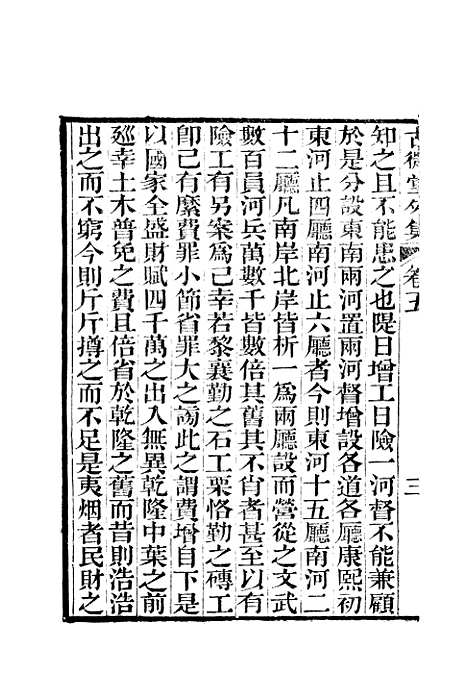 古微堂外集 卷五 三
知之且不能患之也隄日增工日險一河督不能兼顧
於是分設東南兩河置兩河督增設各道各廳康熙初
東河止四廳南河止六廳者今則東河十五廳南河二
十二廳凡南岸北岸皆析一為兩廳設而營從之文武
數百員河兵萬數千皆數倍其舊其不肖者甚至以有
險工有另案為己幸若黎襄勤之石工栗恪勤之磚工
卽己有縻費罪小節省罪大之謁此之謂費增自下是
以國家全盛財賦四千萬之出入無異乾隆中葉之前
廵幸土木普免之費且倍省於乾隆之舊而昔則浩浩
出之而不窮今則斤斤撙之而不足是夷烟者民財之